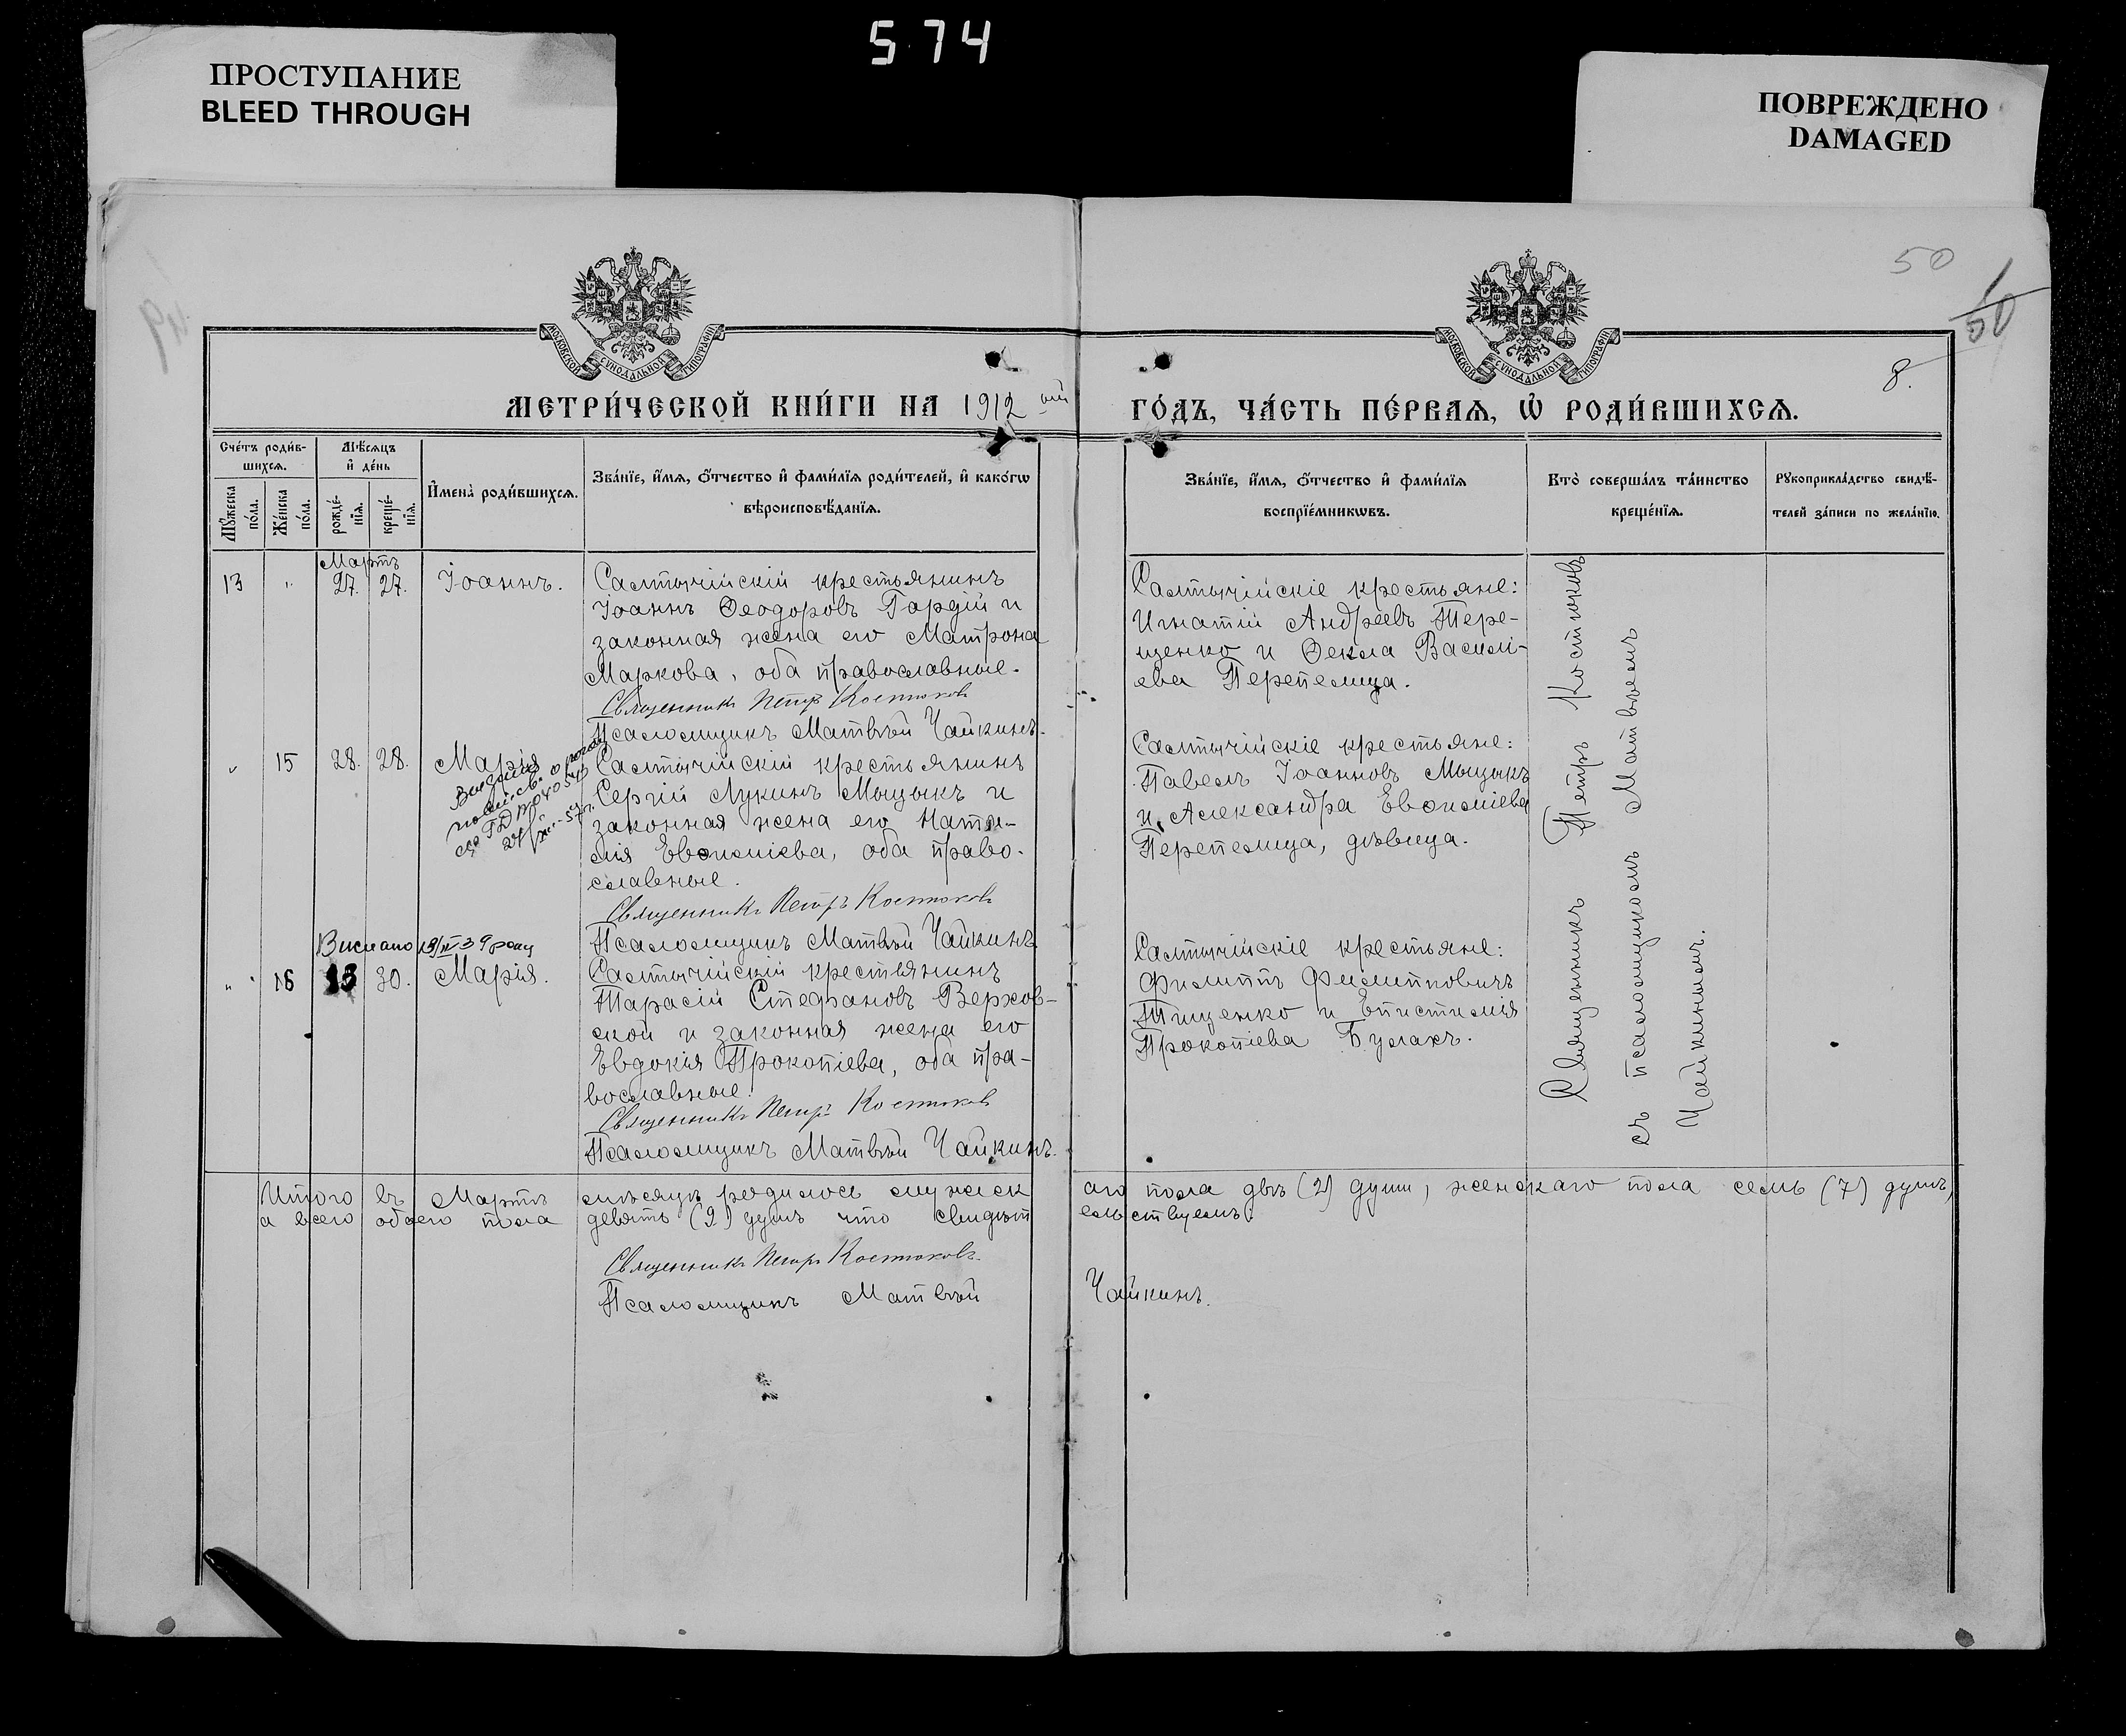 574
ПРОСТУПАНИЕ
BLEED THROUGH
ПОВРЕЖДЕНО
DAMAGED
50
50
8.
МОСКОВСКОЙ СѴНОДАЛЬНОЙ ТИПОГРАФІИ
МОСКОВСКОЙ СѴНОДАЛЬНОЙ ТИПОГРАФІИ
МЕТРИ́ЧЕСКОЙ КНИ́ГИ НА 1912 ый ГО́ДЪ, ЧА́СТЬ ПЕ́РВАѦ, Ѡ҆ РОДИ́ВШИХСѦ.
Сче́тъ роди́в-
шихсѧ.
Мꙋ́жеска
по́ла.
Же́нска
по́ла.
Мѣ́сѧцъ
и҆ де́нь
рожде́-
нїѧ.
креще́-
нїѧ.
И҆мена̀ роди́вшихсѧ.
Зва́нїе, и҆́мѧ, ѻ҆́тчество и҆ фами́лїѧ роди́телей, и҆ како́гѡ
вѣроисповѣ́данїѧ.
Зва́нїе, и҆́мѧ, ѻ҆́тчество и҆ фами́лїѧ
воспрїе́мникѡвъ.
Кто̀ соверша́лъ та́инство
креще́нїѧ.
Рꙋкоприкла́дство свидѣ́-
телей за́писи по жела́нїю.
Мартъ
13 " 27. 27. Іоаннъ.
Салтычійскій крестьянинъ
Іоаннъ Ѳеодоровъ Гордій и
законная жена его Матрона
Маркова, оба православные.
Священникъ Петръ Костюковъ
Псаломщикъ Матвѣй Чайкинъ.
Салтычійскіе крестьяне:
Игнатій Андреевъ Тере-
щенко и Ѳекла Василі-
ева Перепелица.
" 15 28. 28. Марія
Салтычійскій крестьянинъ
Сергій Лукинъ Мыцыкъ и
законная жена его Ната-
лія Евѳиміева, оба право-
славные.
Священникъ Петръ Костюковъ
Псаломщикъ Матвѣй Чайкинъ.
Салтычійскіе крестьяне:
Павелъ Іоанновъ Мыцыкъ
и Александра Евѳиміева
Перепелица, дѣвица.
Виписано 19/IV 39 року
" 16 13 30. Марія.
Салтычійскій крестьянинъ
Тарасій Стефановъ Верхов-
ской и законная жена его
Евдокія Прокопіева, оба пра-
вославные.
Священникъ Петръ Костюковъ
Псаломщикъ Матвѣй Чайкинъ.
Салтычійскіе крестьяне:
Филиппъ Филипповичъ
Тищенко и Епистимія
Прокопіева Булахъ.
Священникъ Петръ Костюковъ
съ псаломщикомъ Матвѣемъ
Чайкинымъ.
Итого въ Мартѣ мѣсяцѣ родилось мужеск аго пола двѣ (2) души, женскаго пола семь (7) душъ,
а всего обоего пола девять (9) душъ что свидѣт ельствуемъ:
Священникъ Петръ Костюковъ.
Псаломщикъ Матвѣй Чайкинъ.